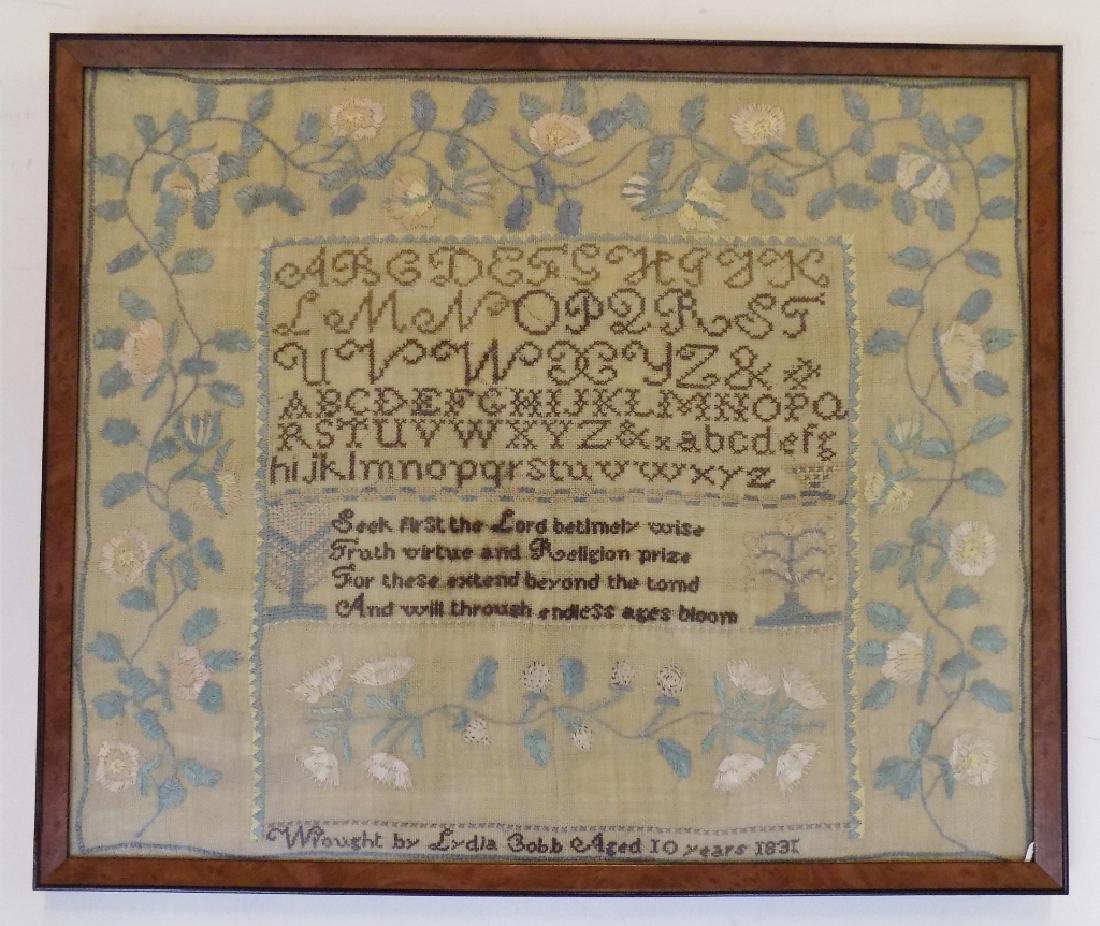 A B C D E F G H I J K
L M N O P Q R S T
U V W X Y Z &
A B C D E F G H I J K L M N O P Q
R S T U V W X Y Z & x a b c d e f g
h i j k l m n o p q r s t u v w x y z
Seek first the Lord betimely wise
Truth virtue and Religion prize
For these extend beyond the tomd
And will through endless ages bloom
Wrought by Lydia Cobb Aged 10 years 1831